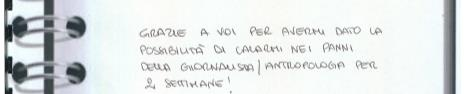 GRAZIE A VOI PER AVERMI DATO LA
POSSIBILITÀ DI CALARMI NEI PANNI
DELLA GIORNALISTA/ANTROPOLOGIA PER
2 SETTIMANE!